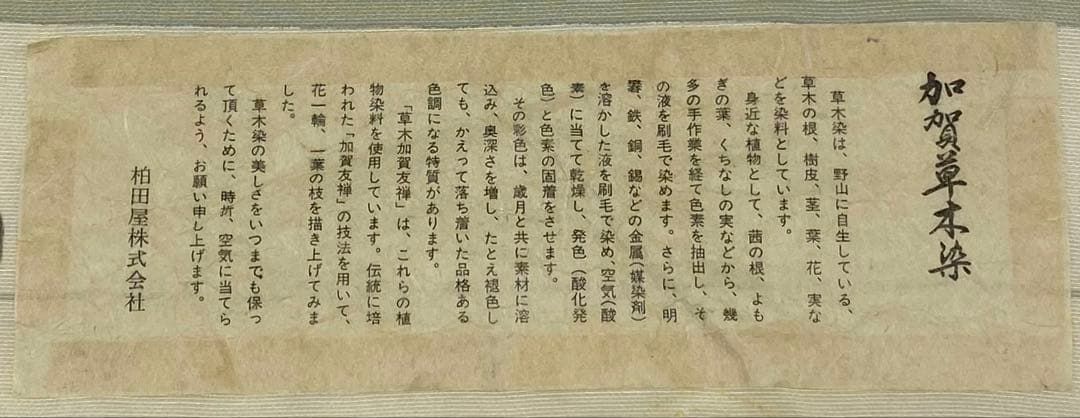 加賀草木染
草木染は、野山に自生している、
草木の根、樹皮、茎、葉、花、実な
どを染料としています。
身近な植物として、茜の根、よも
ぎの葉、くちなしの実などから、幾
多の手作業を経て色素を抽出し、そ
の液を刷毛で染めます。さらに、明
礬、鉄、銅、錫などの金属(媒染剤)
を溶かした液を刷毛で染め、空気(酸
素)に当てて乾燥し、発色(酸化発
色)と色素の固着をさせます。
その彩色は、歳月と共に素材に溶
込み、奥深さを増し、たとえ褪色し
ても、かえって落ち着いた品格ある
色調になる特質があります。
「草木加賀友禅」は、これらの植
物染料を使用しています。伝統に培
われた「加賀友禅」の技法を用いて、
花一輪、一葉の枝を描き上げてみま
した。
草木染の美しさをいつまでも保っ
て頂くために、時折、空気に当てら
れるよう、お願い申し上げます。
柏田屋株式会社